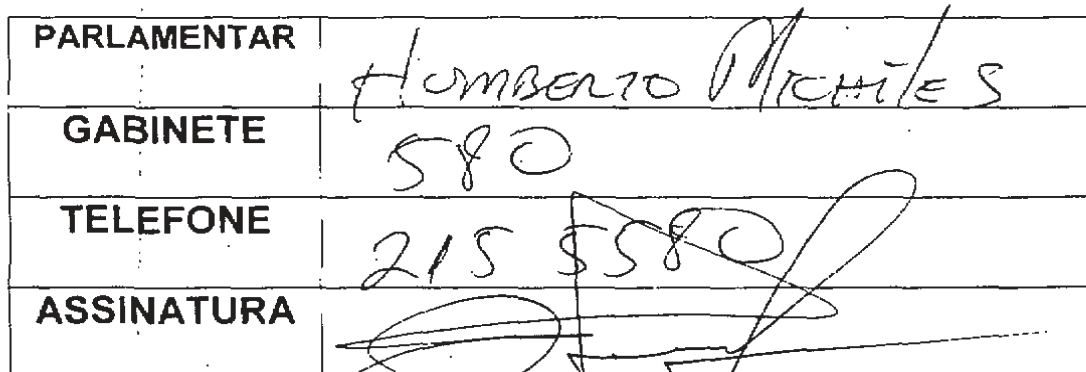 PARLAMENTAR HUMBERTO MICHILES
GABINETE 580
TELEFONE 215 5580
ASSINATURA